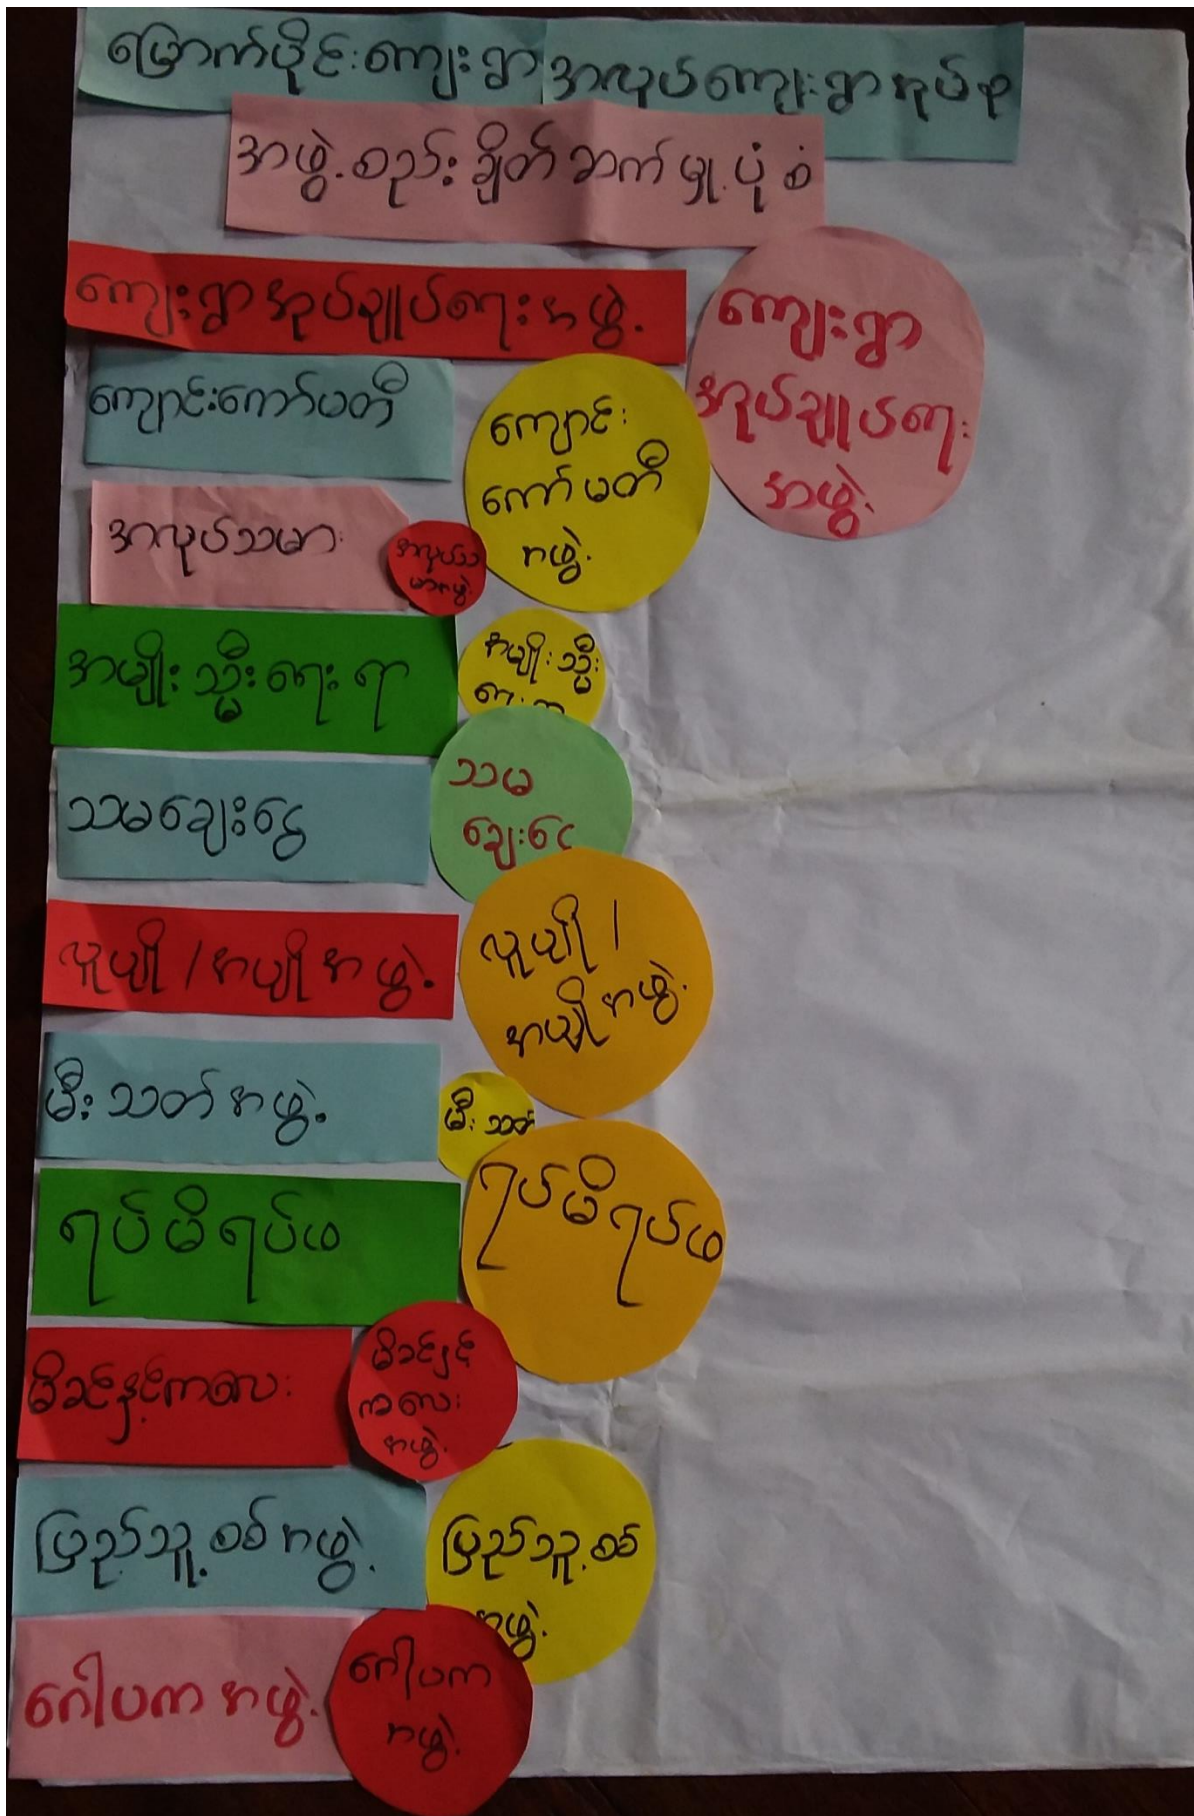 မြောက်ပိုင်းကျေးရွာ အလုပ်ကျေးရွာအုပ်စု
အဖွဲ့စည်းချိတ်ဆက်မှု့ပုံစံ
ကျေးရွာအုပ်ချူပ်ရေးအဖွဲ့
ကျေးရွာ
အုပ်ချူပ်ရေး
အဖွဲ့
ကျောင်းကော်မတီ
ကျောင်း
ကော်မတီ
အဖွဲ့
အလုပ်သမား
အလုပ်သ
မားအဖွဲ့
အမျိုးသ္မီးရေးရာ
အမျိုးသ္မီး
ရေးရာ
သမချေးငွေ
သမ
ချေးငွေ
လူပျို/အပျိုအဖွဲ့
လူပျို/
အပျိုအဖွဲ့
မီးသတ်အဖွဲ့
မီးသတ်
ရပ်မိရပ်ဖ
ရပ်မိရပ်ဖ
မိခင်နှင့်ကလေး
မိခင်နှင့်
ကလေး
အဖွဲ့
ပြည်သူ့စစ်အဖွဲ့
ပြည်သူ့စစ်
အဖွဲ့
ဂေါပကအဖွဲ့
ဂေါပက
အဖွဲ့